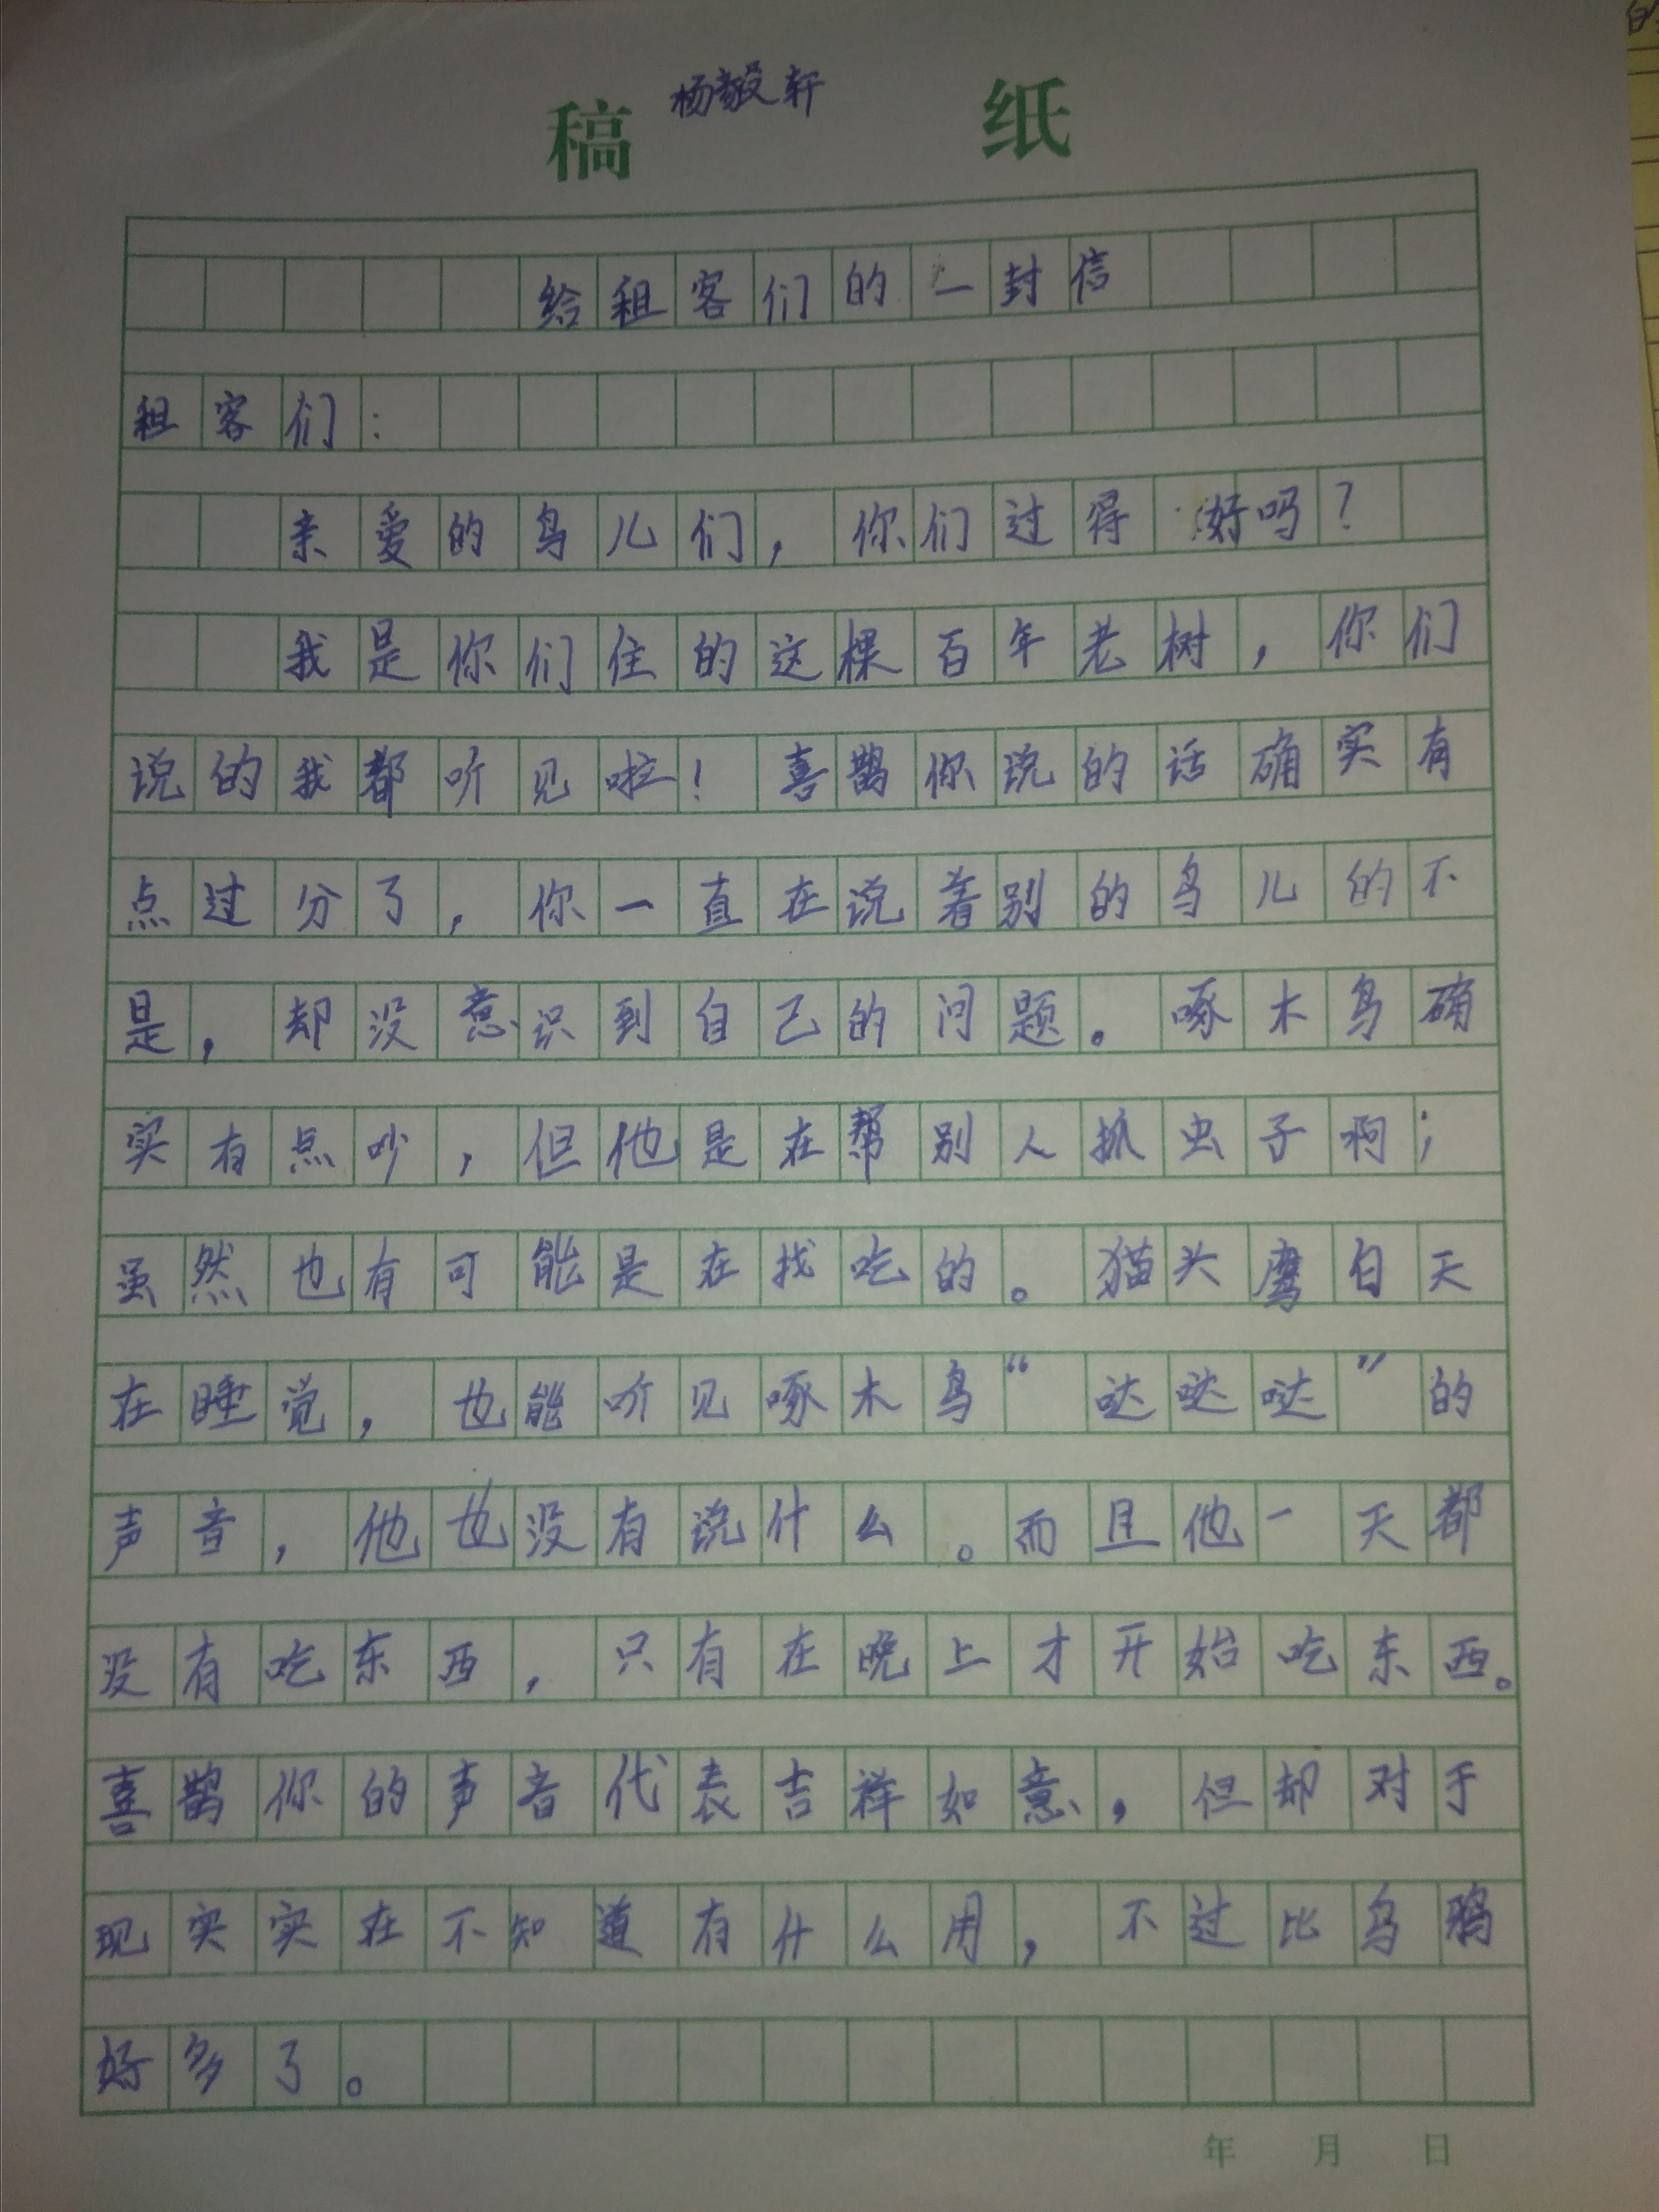 杨毅轩
稿 纸
给租客们的一封信
租客们：
亲爱的鸟儿们，你们过得好吗？
我是你们住的这棵百年老树，你们
说的我都听见啦！喜鹊你说的话确实有
点过分了，你一直在说着别的鸟儿的不
是，却没意识到自己的问题。啄木鸟确
实有点吵，但他是在帮别人抓虫子啊；
虽然也有可能是在找吃的。猫头鹰白天
在睡觉，也能听见啄木鸟“哒哒哒”的
声音，他也没有说什么。而且他一天都
没有吃东西，只有在晚上才开始吃东西。
喜鹊你的声音代表吉祥如意，但却对于
现实实在不知道有什么用，不过比乌鸦
好多了。
年 月 日